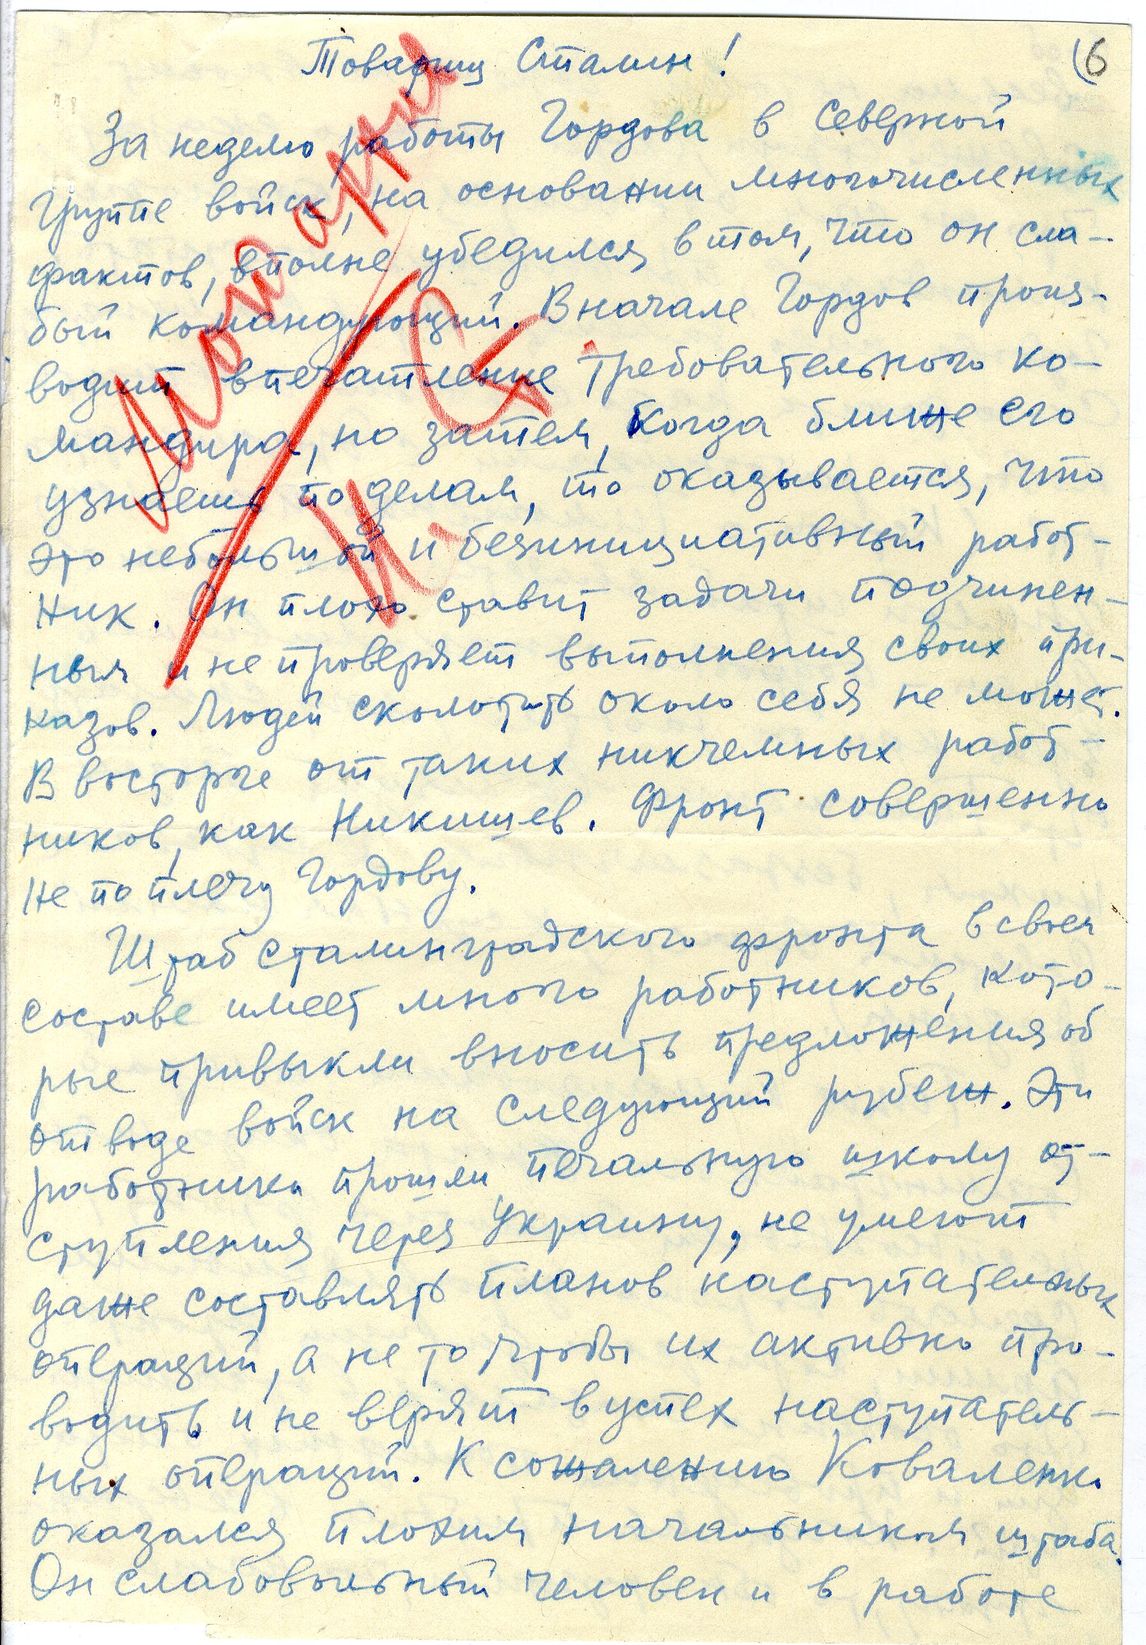 Товарищ Сталин!
(6
За неделю работы Гордова в Северной
группе войск, на основании многочисленных
фактов, вполне убедился в том, что он сла-
бый командующий. Вначале Гордов произ-
водит впечатление требовательного ко-
мандира, но затем, когда ближе его
узнаешь по делам, то оказывается, что
это небольшой и безинициативный работ-
ник. Он плохо ставит задачи подчинен-
ным и не проверяет выполнения своих при-
казов. Людей сколотить около себя не может.
В восторге от таких никчемных работ-
ников, как Никишев. Фронт совершенно
не по плечу Гордову.
Штаб Сталинградского фронта в своем
составе имеет много работников, кото-
рые привыкли вносить предложения об
отводе войск на следующий рубеж. Эти
работники прошли печальную школу от-
ступления через Украину, не умеют
даже составлять планов наступательных
операций, а не то чтобы их активно про-
водить и не верят в успех наступатель-
ных операций. К сожалению Коваленко
оказался плохим начальником штаба.
Он слабовольный человек и в работе